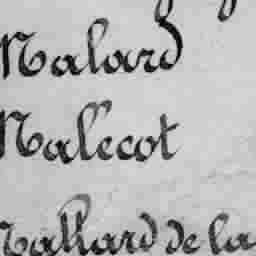 Malard
Malecot
Mallard de la